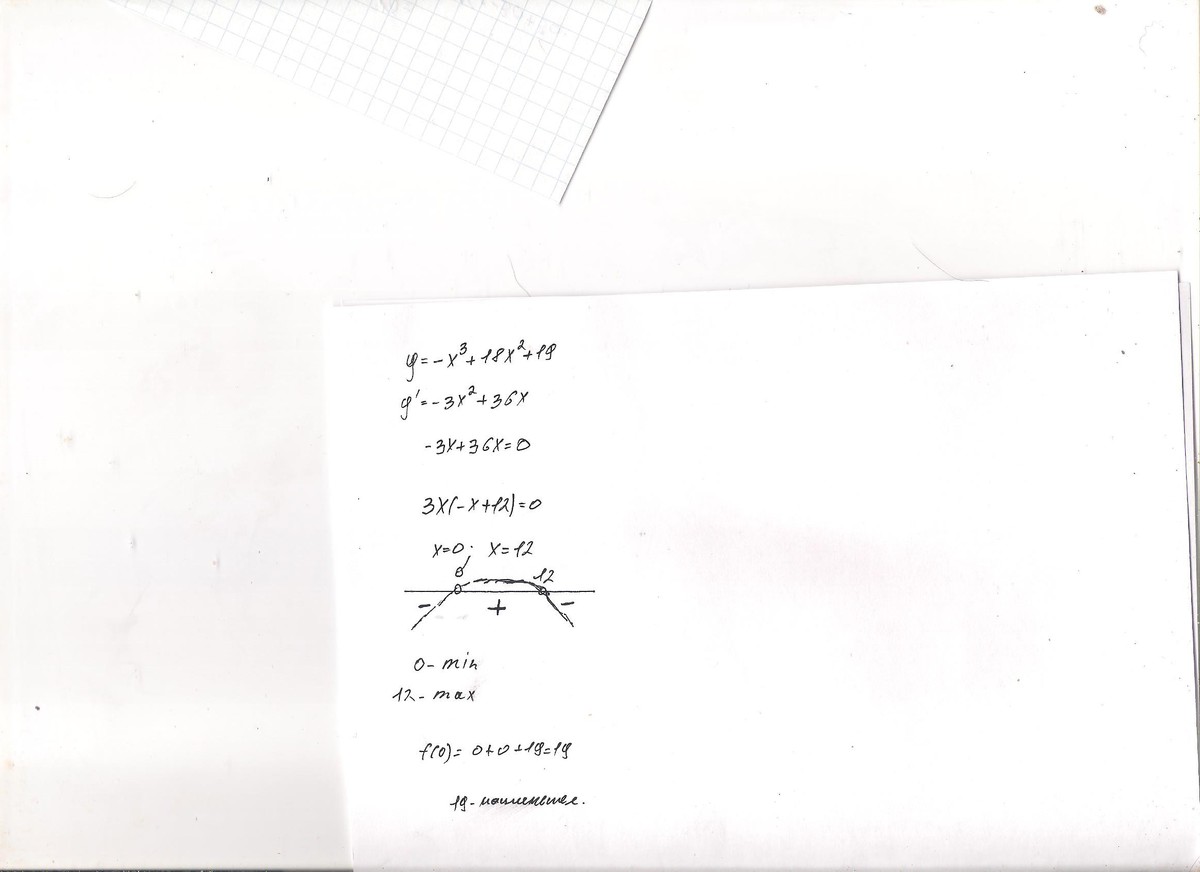 y=-x³+18x²+19
y'=-3x²+36x
-3x+36x=0
3x(-x+12)=0
x=0; x=12
0 12
- + -
0- min
12- max
f(0)= 0+0+19=19
19-наименьшее.